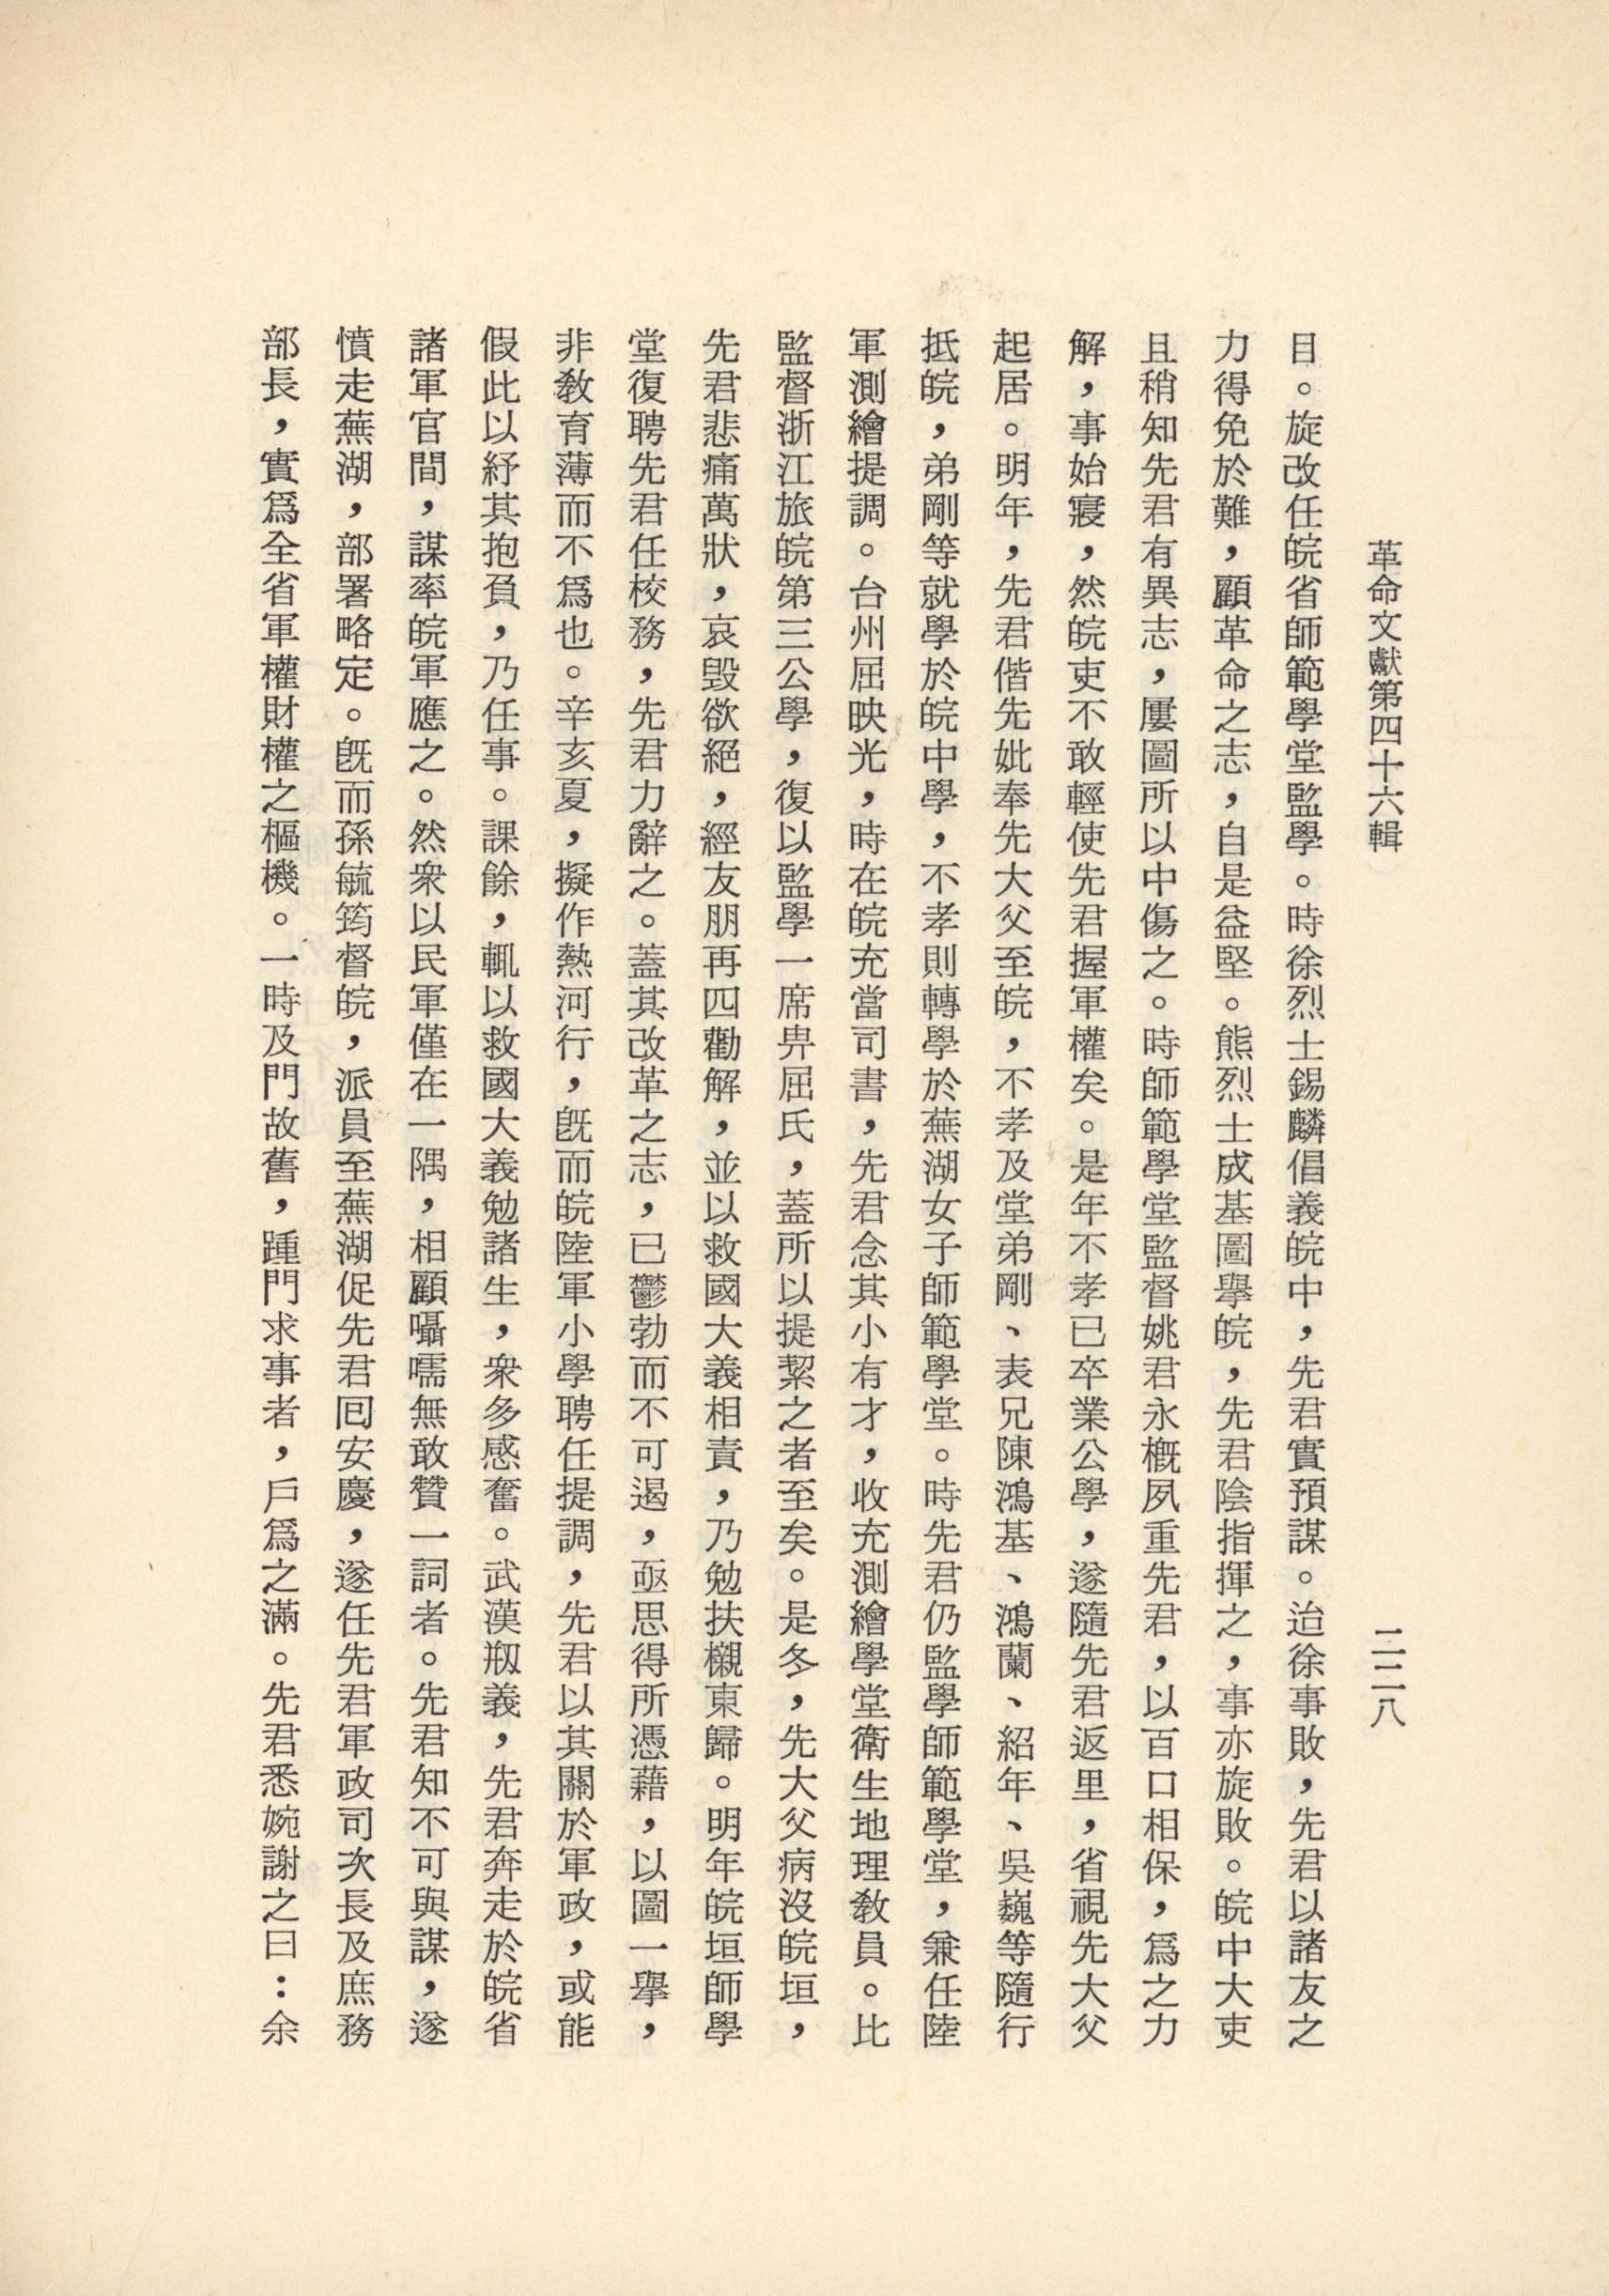 革命文獻第四十六輯
二二八
目。旋改任皖省師範學堂監學。時徐烈士錫麟倡義皖中，先君實預謀。迨徐事敗，先君以諸友之
力得免於難，顧革命之志，自是益堅。熊烈士成基圖舉皖，先君陰指揮之，事亦旋敗。皖中大吏
且稍知先君有異志，屢圖所以中傷之。時師範學堂監督姚君永概夙重先君，以百口相保，爲之力
解，事始寢，然皖吏不敢輕使先君握軍權矣。是年不孝已卒業公學，遂隨先君返里，省視先大父
起居。明年，先君偕先妣奉先大父至皖，不孝及堂弟剛、表兄陳鴻基、鴻蘭、紹年、吳巍等隨行
抵皖，弟剛等就學於皖中學，不孝則轉學於蕪湖女子師範學堂。時先君仍監學師範學堂，兼任陸
軍測繪提調。台州屈映光，時在皖充當司書，先君念其小有才，收充測繪學堂衛生地理教員。比
監督浙江旅皖第三公學，復以監學一席畀屈氏，蓋所以提絜之者至矣。是冬，先大父病沒皖垣，
先君悲痛萬狀，哀毁欲絕，經友朋再四勸解，並以救國大義相責，乃勉扶櫬東歸。明年皖垣師學
堂復聘先君任校務，先君力辭之。蓋其改革之志，已鬱勃而不可遏，亟思得所憑藉，以圖一舉，
非教育薄而不爲也。辛亥夏，擬作熱河行，既而皖陸軍小學聘任提調，先君以其關於軍政，或能
假此以紓其抱負，乃任事。課餘，輒以救國大義勉諸生，衆多感奮。武漢剏義，先君奔走於皖省
諸軍官間，謀率皖軍應之。然衆以民軍僅在一隅，相顧囁嚅無敢贊一詞者。先君知不可與謀，遂
憤走蕪湖，部署略定。既而孫毓筠督皖，派員至蕪湖促先君回安慶，遂任先君軍政司次長及庶務
部長，實爲全省軍權財權之樞機。一時及門故舊，踵門求事者，戶爲之滿。先君悉婉謝之曰：余